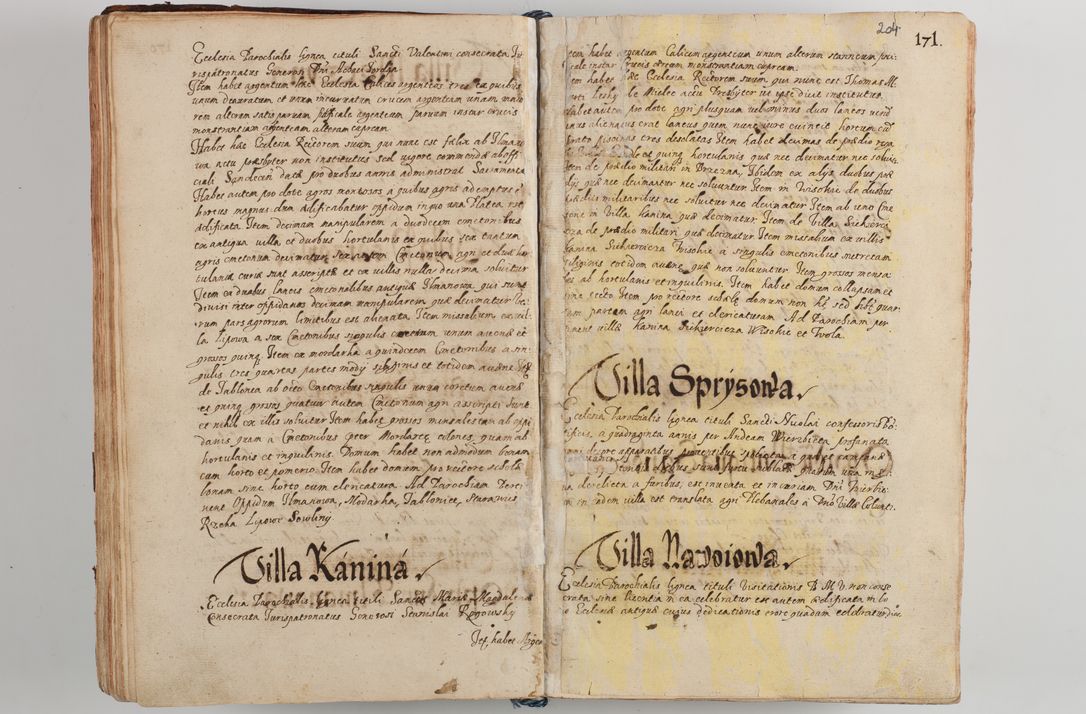 Ecclesia Parochialis lignea tituli Sancti Valentini consecrata Iu
rispatronatus Generosi Dni Achacii Iordan
Item habet argentum haec Ecclesia Calices argenteos tres ex quibus
unum deauratum et unum incuruatum crucem argenteam unam maio
rem alteram satis paruam pacificale argenteum paruum instar crucis
monstrantiam argenteam alteram cupream.
Habet haec Ecclesia Rectorem suum qui nunc est Felix ab Ilmano
wa actu praesbyter non institutus sed uigore commendae ab offi
ciali Sandecen datae pro duobus annis administrat Sacramenta
Habet autem pro dote agros montosos a quibus agris ademptus e
hortus magnus dum aedificabatur oppidum in quo una Platea est
aedificata Item decimam manipularem a duodecim cmetonibus
ex antiqua villa et duobus hortulanis ex quibus sex tantum
agris cmetonum decimatur sex autem Cmetonum agri et duae hor
tulaniae curiae sunt asscriptae et ex villis nulla decima soluitur
Item ex duabus laneis cmetonalibus antiquae Ilmanowa qui sunt
diuisi inter oppidanos decimam manipularem quae decimatur
rum pars agrorum limitibus est alienata. Item missalium ex vil
la Lipowa a sex Cmetonibus singulis coretum unum auenae et
grossos quinq Item ex mordarka a quindecem Cmetonibus a sin
gulis tres quartas partes modij siliginis et totidem auenae
de Jablonca ab octo Cmetonibus singulis unum coretum auenae
et quinq grossos quatuor autem Cmetonum agri asscripti sunt
et nihil ex illis soluitur Item habet grossos mensales tam ab oppi
danis quam a Cmetonibus praeter Mordarce colonos, quam ab
hortulanis et inquilinis. Domum habet non admodum bonam
cum horto et pomerio. Item habet domum pro rectore scholae
bonam sine horto cum clericatura. Ad Parochiam Perti
nent Oppidum Ilmanowa, Modarka, Jablonice, Starawies
Rzeka Lipowe Sowliny
Villa Kánina
Ecclesia Parochialis lignea tituli Sanctae Mariae Magdalenae
Consecrata Iurispatronatus Generosi Stanislai Rogowsky
Ite, habet Argen
204
171.
tem habet argentum Calicem argenteum unum alterum stanneum paci
cale instar crucis etiam monstrantiam cupream.
tem habet haec Ecclesia Rectorem suum qui nunc est Thomas
de Mielec actu Presbyter ut ipse dixit institutus
habet autem pro dote agri plusquam uel minus duos laneos uerum
unus alienatus erat laneus quem nunc iure euincit hortum cu
prato piscinas tres desolatas Item habet decimas de praedio
et quinq hortulanis quae nec decimatur nec soluit
tem de praedio militari in Brzezna, Ibidem ex alijs duobus prae
dijs quae nec decimantur nec soluuntur Item in Wisokie de duobus
praedijs militaribus nec soluitur nec decimatur Item ab uno Cme
tone in Villa Kanina quae decimatur Item de Villa
de praedio militari quae decimatur Item missalium ex villis
Kanina Wisokie a singulis cmetonibus metretam
siliginis totidem auenae quae non soluuntur Item grossos mensa
les ab hortulanis et inquilinis. Item habet domum collapsam et
sine tecto Item pro rectore scholae domum non het sed habet quar
tam partem agri lanei et clericaturam Ad Parochiam per
tinent villae Kanina Wisokie et Wola.
Villa Sprysowa
Ecclesia Parochialis lignea tituli Sancti Nicolai confessoris Po
tificis, a quadraginta annis per Andream Wierzbieta profanata
apparatibus spoliata
furtu
na derelicta a furibus, est inuenta et in curiam Dni Wierzbie
in eadem villa est translata agri Plebanales a Dno Villae Coluntr.
Villa Nawoiowa
Ecclesia Parochialis lignea tituli Visitationis B M V non conse
crata sine licentia in ea celebratur est autem aedificata in lo
co Ecclesiae antiquae cuius dedicationis error quadam celebratur die